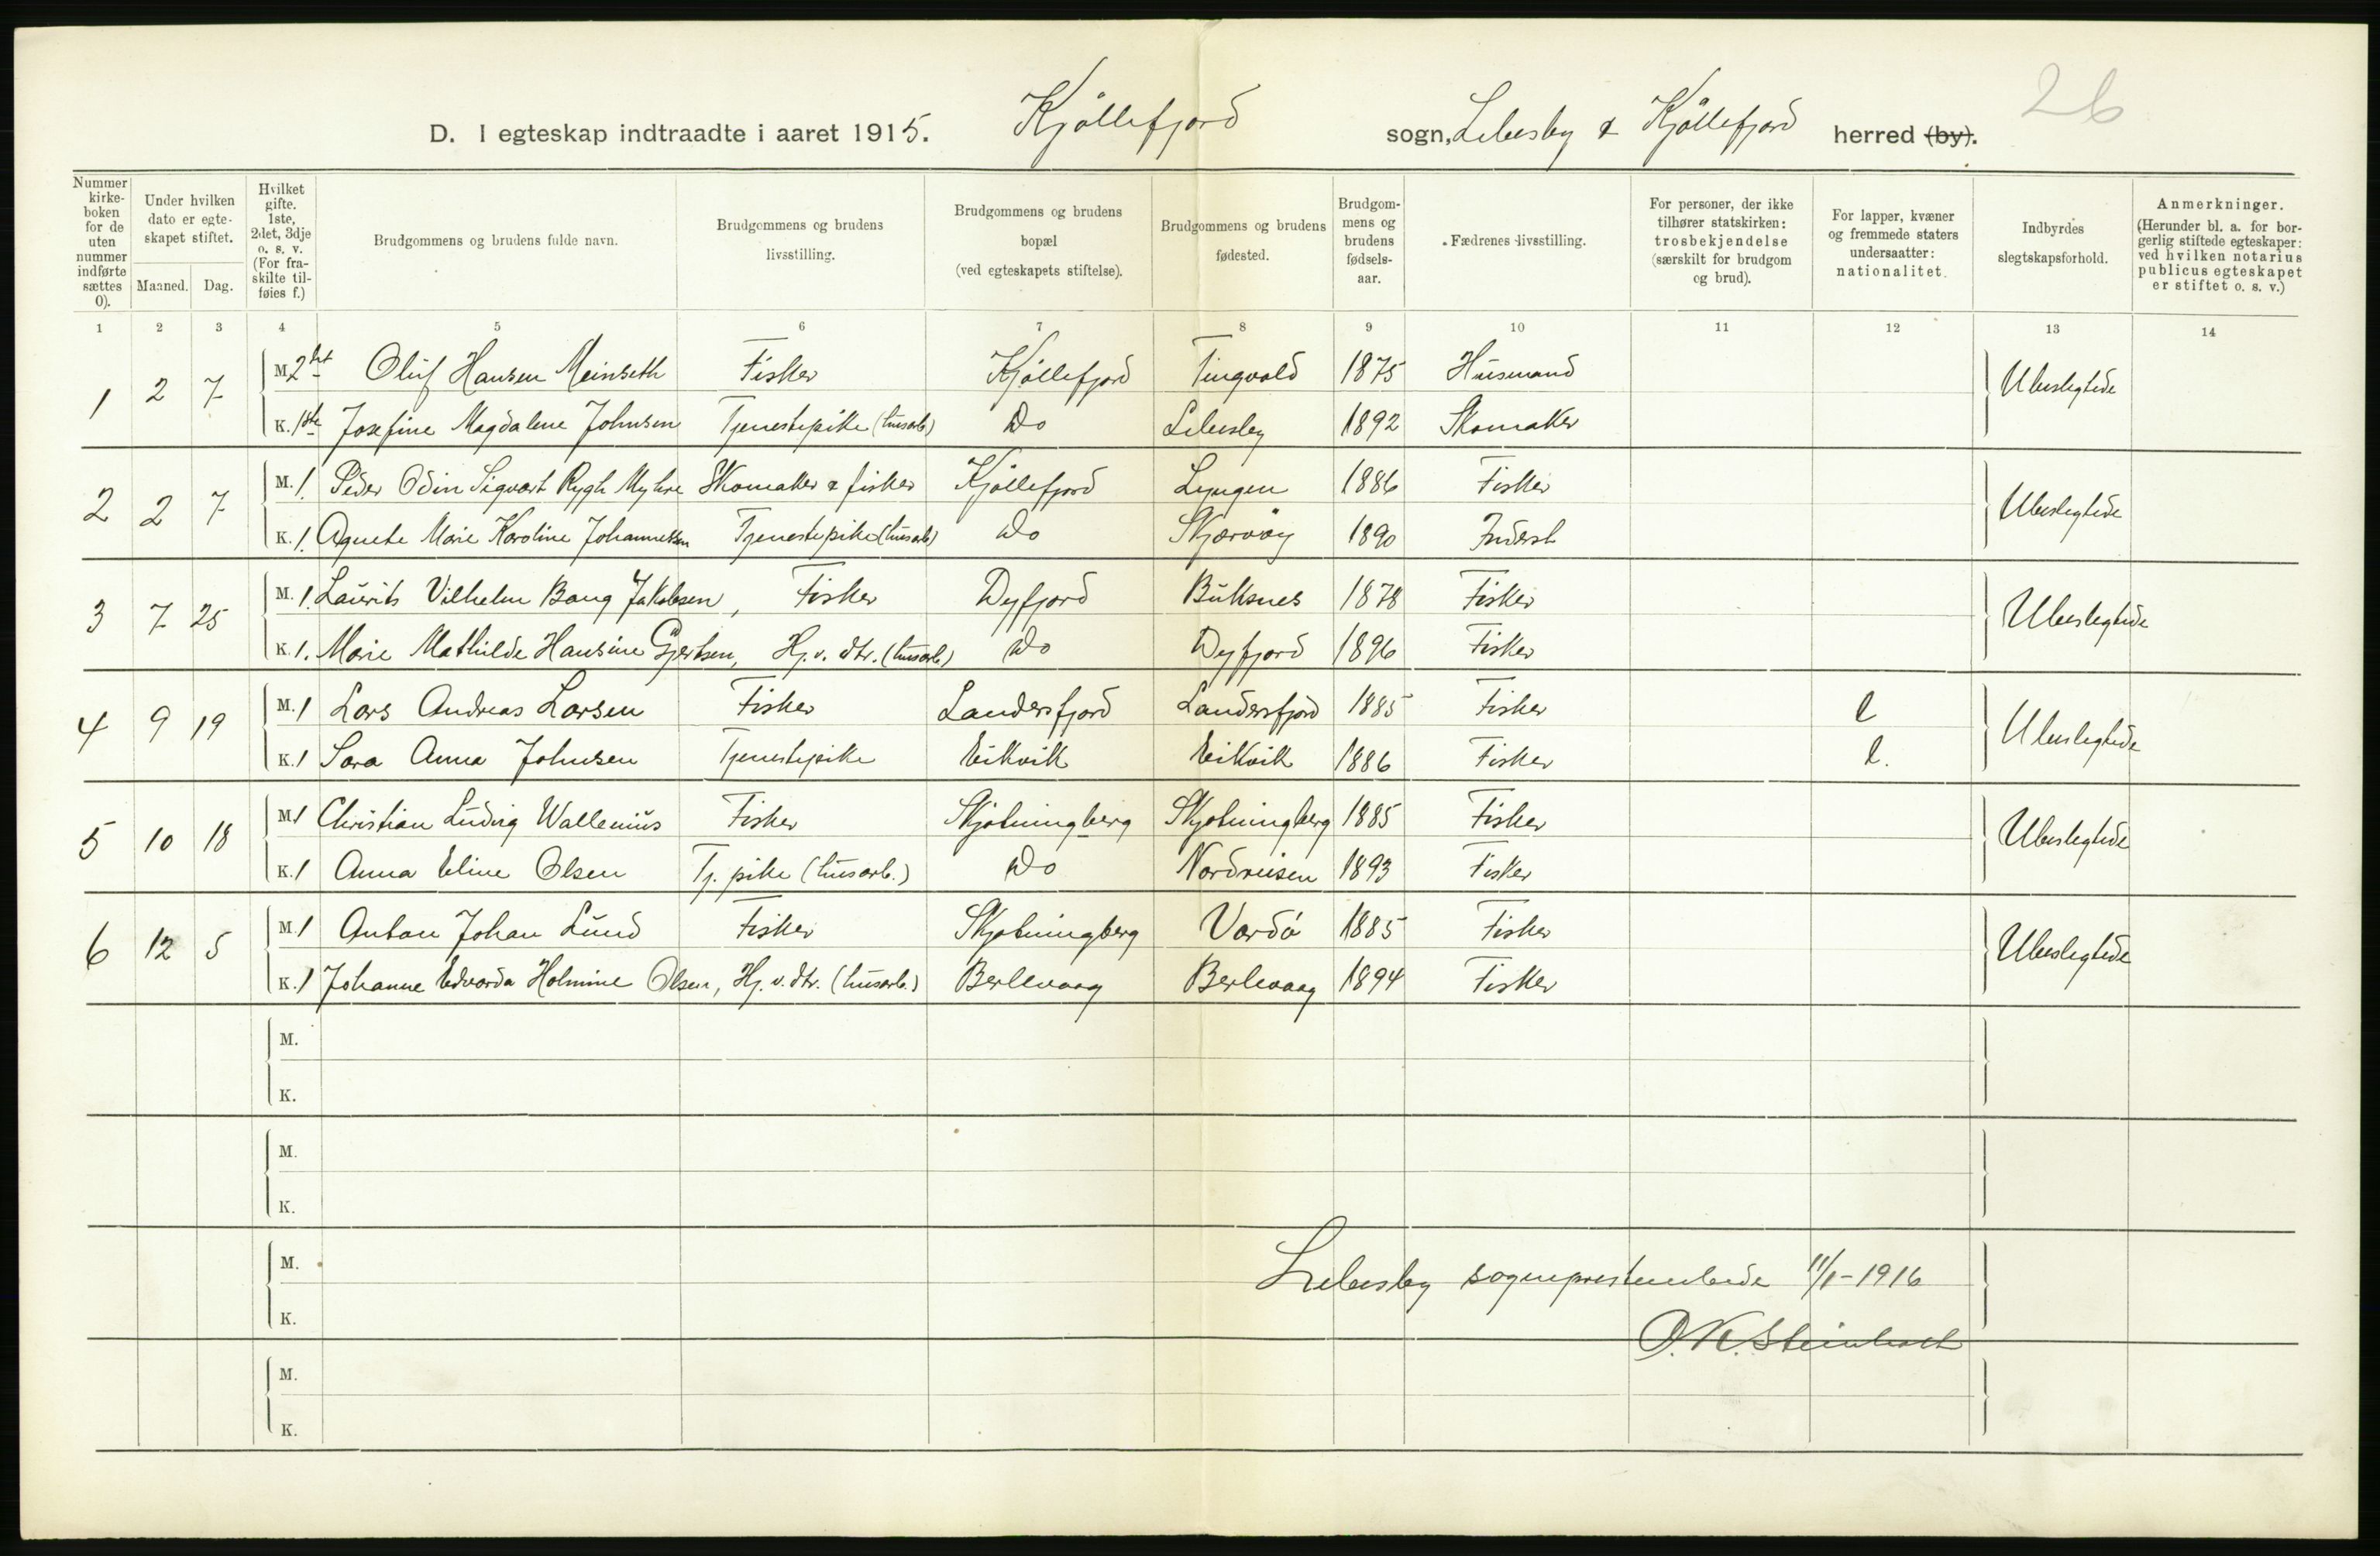 26
D. I egteskap indtraadte i aaret 1915. Kjöllefjord sogn, Lebesby & Kjöllefjord herred (by).
Nummer kirkeboken for de uten nummer indførte sættes 0).
Under hvilken dato er egteskapet stiftet.
Maaned. Dag.
Hvilket gifte. 1ste, 2det, 3dje o. s. v. (For fraskilte tilføies f.)
Brudgommens og brudens fulde navn.
Brudgommens og brudens livsstilling.
Brudgommens og brudens bopæl (ved egteskapets stiftelse).
Brudgommens og brudens fødested.
Brudgommens og brudens fødselsaar.
Fædrenes livsstilling.
For personer, der ikke tilhører statskirken: trosbekjendelse (særskilt for brudgom og brud).
For lapper, kvæner og fremmede staters undersaatter: nationalitet.
Indbyrdes slegtskapsforhold.
Anmerkninger. (Herunder bl. a. for borgerlig stiftede egteskaper: ved hvilken notarius publicus egteskapet er stiftet o. s. v.)
1 2 3 4 5 6 7 8 9 10 11 12 13 14
1 2 7 M. 2det Oluf Hansen Meinseth Fisker Kjöllefjord Tingvold 1875 Husmand Ubeslegtede
K. 1ste Josefine Magdalene Johnsen Tjenestepike (husarb.) Do Lebesby 1892 Skomaker
2 2 7 M. 1. Peder Odin Sigvart Rygh Myhre Skomaker & fisker Kjöllefjord Lyngen 1886 Fisker Ubeslegtede
K. 1. Agnete Marie Karoline Johannessen Tjenestepike (husarb.) Do Skjærvöy 1890 Inderst
3 7 25 M. 1. Laurits Vilhelm Bang Jakobsen, Fisker Dyfjord Buksnes 1878 Fisker Ubeslegtede
K. 1. Marie Mathilde Hansine Gjertsen, Hj. v. dtr. (husarb.) Do Dyfjord 1896 Fisker
4 9 19 M. 1 Lars Andreas Larsen Fisker Landersfjord Landersfjord 1885 Fisker l Ubeslegtede
K. 1 Sara Anna Johnsen Tjenestepike Eikvik Eikvik 1886 Fisker l.
5 10 18 M. 1 Christian Ludvig Wallenius Fisker Skjøtningberg Skjøtningberg 1885 Fisker Ubeslegtede
K. 1 Anna Eline Olsen Tj. pike (husarb.) Do Nordreisen 1893 Fisker
6 12 5 M. 1 Anton Johan Lund Fisker Skjøtningberg Vardö 1885 Fisker Ubeslegtede
K. 1 Johanne Edvarda Holmine Olsen, Hj. v. dtr. (husarb.) Berlevaag Berlevaag 1894 Fisker
M.
K.
M.
K.
M.
Lebesby sogneprestembede 11/1-1916
K.
M.
K.